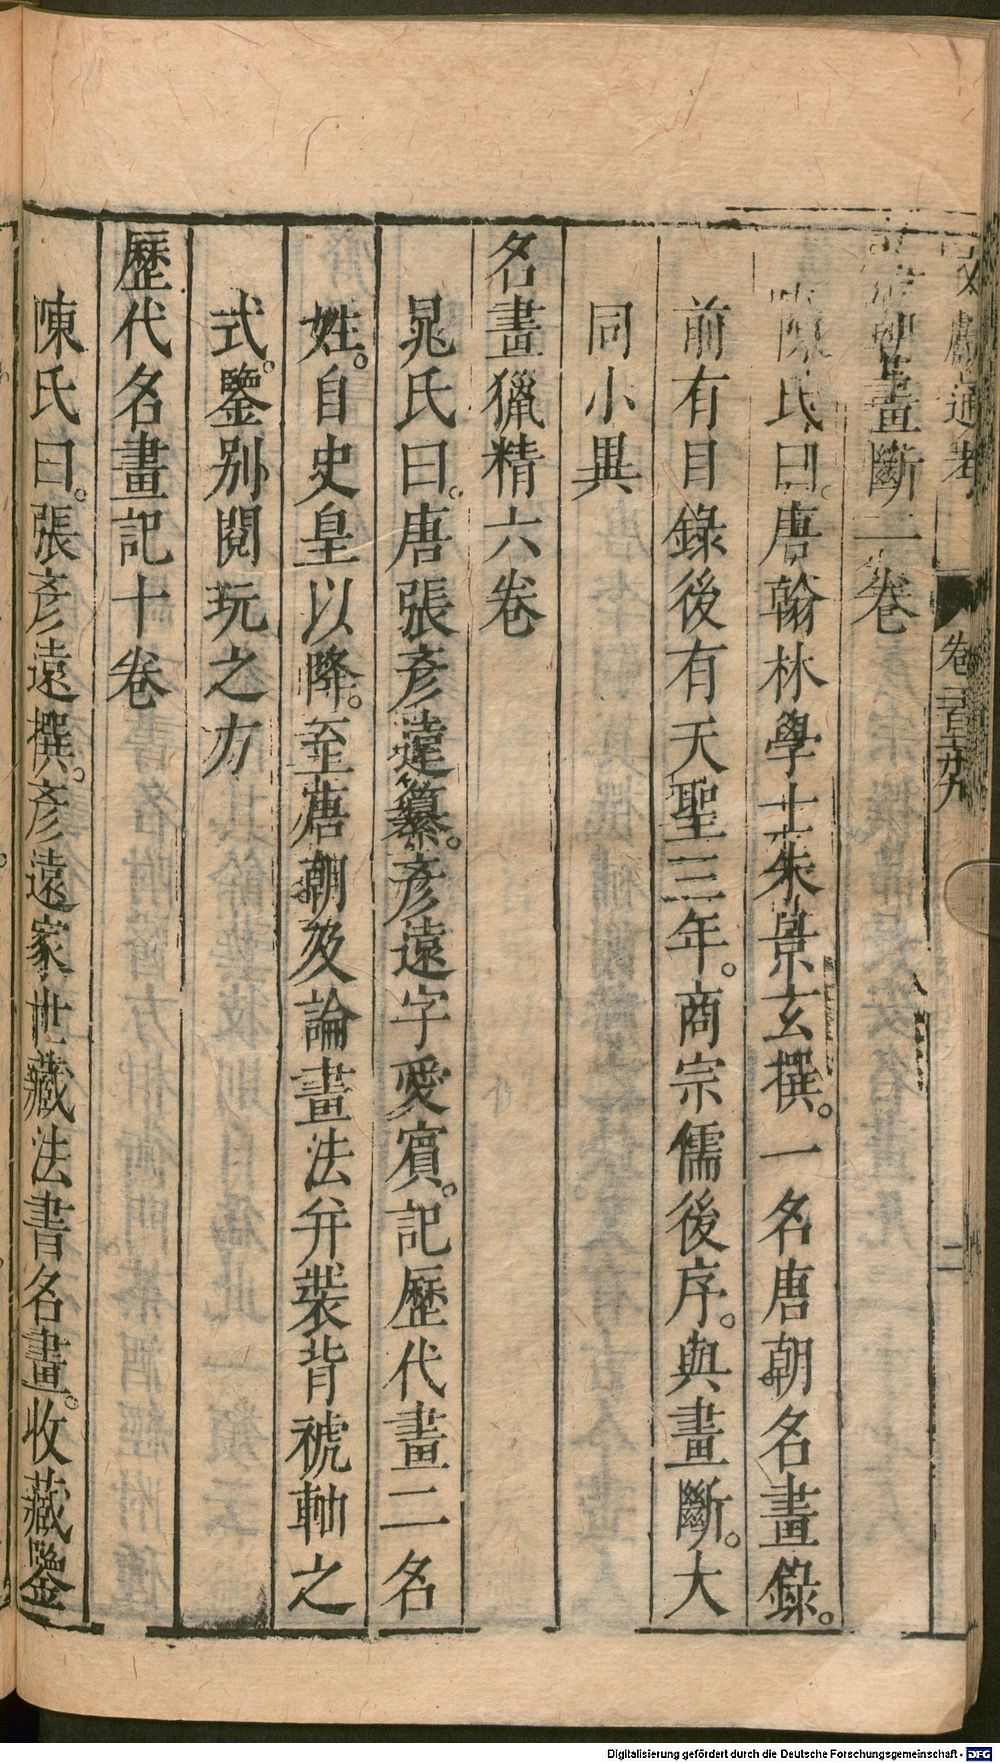 文獻通考 卷二百二十九 二
朝畫斷二卷
陳氏曰。唐翰林學士朱景玄撰。一名唐朝名畫錄。
前有目錄後有天聖三年。商宗儒後序。與畫斷。大
同小異
名畫獵精六卷
晁氏曰。唐張彥遠纂。彥遠字愛賓。記歷代畫二名
姓。自史皇以降。至唐朝及論畫法并裝背裭軸之
式。鑒別閱玩之方
歷代名畫記十卷
陳氏曰。張彥遠撰。彥遠家世藏法書名畫。收藏鑒
Digitalisierung gefördert durch die Deutsche Forschungsgemeinschaft - DFG